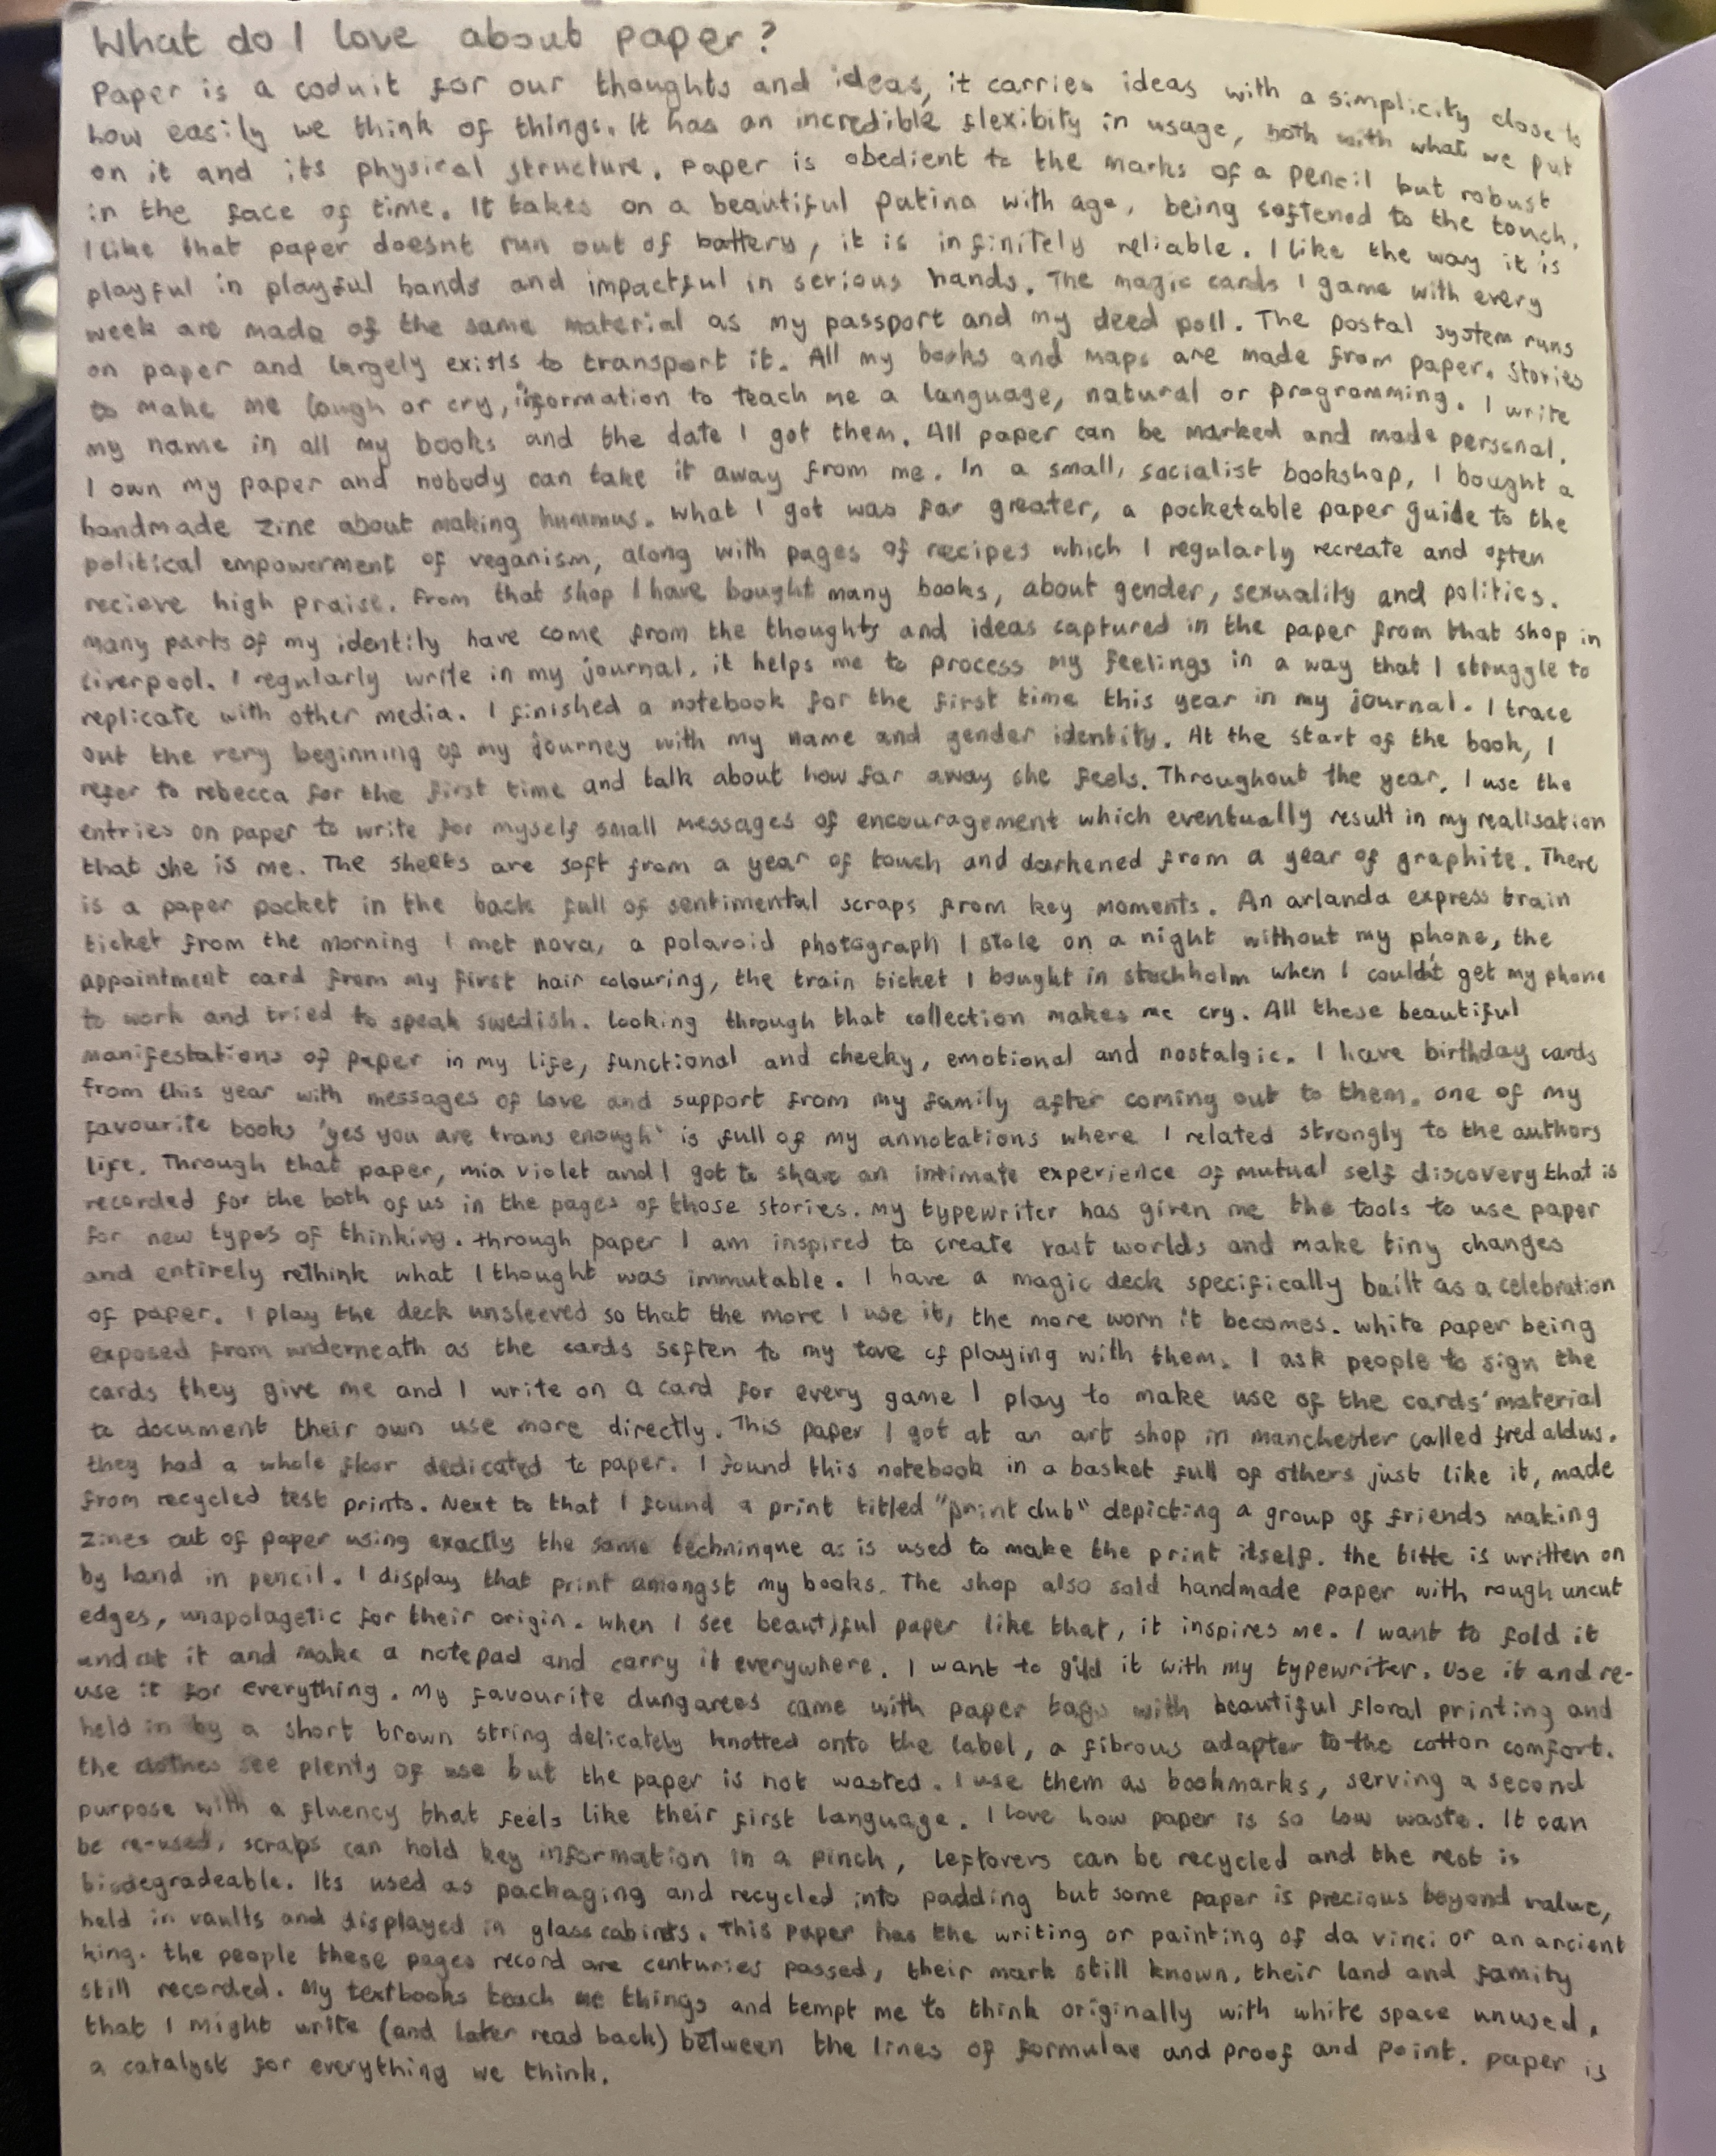 What do I love about paper?
Paper is a coduit for our thoughts and ideas, it carries ideas with a simplicity close to
how easily we think of things. It has an incredible flexibity in usage, both with what we put
on it and its physical structure. Paper is obedient to the marks of a pencil but robust
in the face of time. It takes on a beautiful patina with age, being softened to the touch.
I like that paper doesnt run out of battery, it is infinitely reliable. I like the way it is
playful in playful hands and impactful in serious hands. The magic cards I game with every
week are made of the same material as my passport and my deed poll. The postal system runs
on paper and largely exists to transport it. All my books and maps are made from paper. Stories
to make me laugh or cry, information to teach me a language, natural or programming. I write
my name in all my books and the date I got them. All paper can be marked and made personal.
I own my paper and nobody can take it away from me. In a small, socialist bookshop, I bought a
handmade zine about making hummus. What I got was far greater, a pocketable paper guide to the
political empowerment of veganism, along with pages of recipes which I regularly recreate and often
recieve high praise. From that shop I have bought many books, about gender, sexuality and politics.
Many parts of my identity have come from the thoughts and ideas captured in the paper from that shop in
Liverpool. I regularly write in my journal, it helps me to process my feelings in a way that I struggle to
replicate with other media. I finished a notebook for the first time this year in my journal. I trace
out the very beginning of my journey with my name and gender identity. At the start of the book, I
refer to rebecca for the first time and talk about how far away she feels. Throughout the year, I use the
entries on paper to write for myself small messages of encouragement which eventually result in my realisation
that she is me. The sheets are soft from a year of touch and darkened from a year of graphite. There
is a paper pocket in the back full of sentimental scraps from key moments. An arlanda express train
ticket from the morning I met nova, a polaroid photograph I stole on a night without my phone, the
appointment card from my first hair colouring, the train ticket I bought in stockholm when I could't get my phone
to work and tried to speak swedish. Looking through that collection makes me cry. All these beautiful
manifestations of paper in my life, functional and cheeky, emotional and nostalgic. I have birthday cards
from this year with messages of love and support from my family after coming out to them. One of my
favourite books 'yes you are trans enough' is full of my annotations where I related strongly to the authors
life. Through that paper, mia violet and I got to share an intimate experience of mutual self discovery that is
recorded for the both of us in the pages of those stories. My typewriter has given me the tools to use paper
for new types of thinking. Through paper I am inspired to create vast worlds and make tiny changes
and entirely rethink what I thought was immutable. I have a magic deck specifically built as a celebration
of paper. I play the deck unsleeved so that the more I use it, the more worn it becomes. White paper being
exposed from underneath as the cards soften to my love of playing with them. I ask people to sign the
cards they give me and I write on a card for every game I play to make use of the cards' material
to document their own use more directly. This paper I got at an art shop in manchester called fred aldus.
they had a whole floor dedicated to paper. I found this notebook in a basket full of others just like it, made
from recycled test prints. Next to that I found a print titled "print club" depicting a group of friends making
zines out of paper using exactly the same techninque as is used to make the print itself. the title is written on
by hand in pencil. I display that print amongst my books. The shop also sold handmade paper with rough uncut
edges, unapolagetic for their origin. When I see beautiful paper like that, it inspires me. I want to fold it
and cut it and make a notepad and carry it everywhere. I want to gild it with my typewriter. Use it and re-
use it for everything. My favourite dungarees came with paper tags with beautiful floral printing and
held in by a short brown string delicately knotted onto the label, a fibrous adapter to the cotton comfort.
the clothes see plenty of use but the paper is not wasted. I use them as bookmarks, serving a second
purpose with a fluency that feels like their first language. I love how paper is so low waste. It can
be re-used, scraps can hold key information in a pinch, leftovers can be recycled and the rest is
biodegradeable. Its used as packaging and recycled into padding but some paper is precious beyond value,
held in vaults and displayed in glass cabinets. This paper has the writing or painting of da vinci or an ancient
king. the people these pages record are centuries passed, their mark still known, their land and family
still recorded. My textbooks teach me things and tempt me to think originally with white space unused,
that I might write (and later read back) between the lines of formulae and proof and point. Paper is
a catalyst for everything we think.